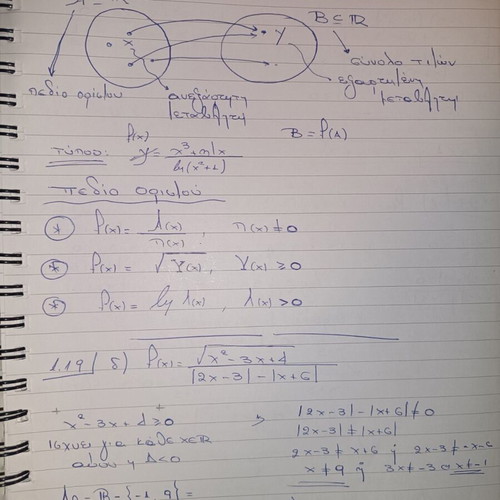 B ⊆ ℝ
x
y
σύνολο τιμών
πεδίο ορισμού
ανεξάρτητη μεταβλητή
εξαρτημένη μεταβλητή
f(x)
B = f(A)
τύπος: y =
ln(x²+1)
πεδίο ορισμού
* f(x) = λ(x)/π(x), π(x) ≠ 0
* f(x) = √Υ(x), Υ(x) ≥ 0
* f(x) = log λ(x), λ(x) > 0
1.19/ δ) f(x) = √(x² - 3x + 4) / (|2x-3| - |x+6|)
x² - 3x + 4 ≥ 0
ισχύει για κάθε x∈ℝ
αφού η Δ<0
|2x-3| - |x+6| ≠ 0
|2x-3| ≠ |x+6|
2x-3 ≠ x+6 ή 2x-3 ≠ -x-6
x ≠ 9 ή 3x ≠ -3 x ≠ -1
= ℝ - {-1, 9} =